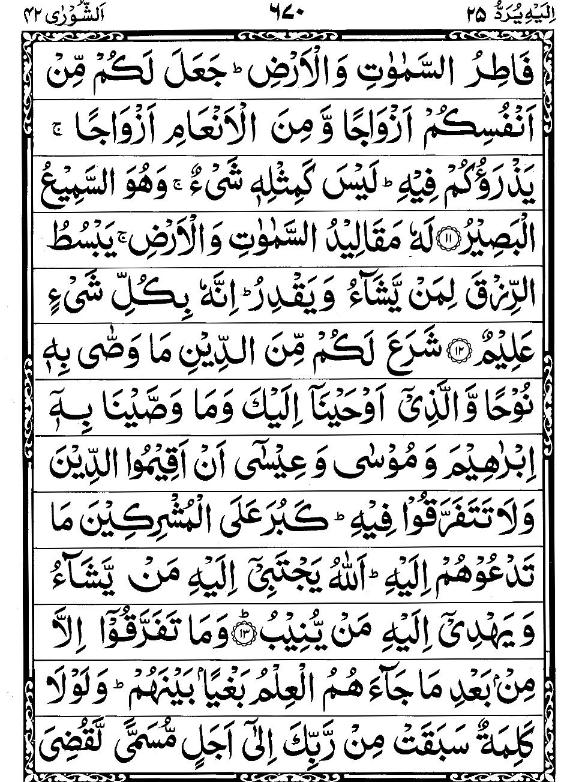 اِلَیْهِ یُرَدُّ ۲۵ ۶۷۰ اَلشُّوْرٰی ۴۲
فَاطِرُ السَّمٰوٰتِ وَالْاَرْضِ ؕ جَعَلَ لَكُمْ مِّنْ
اَنْفُسِكُمْ اَزْوَاجًا وَّ مِنَ الْاَنْعَامِ اَزْوَاجًا ۚ
یَذْرَؤُكُمْ فِیْهِ ؕ لَیْسَ كَمِثْلِهٖ شَیْءٌ ۚ وَهُوَ السَّمِیْعُ
الْبَصِیْرُ ۝۱۱ لَهٗ مَقَالِیْدُ السَّمٰوٰتِ وَالْاَرْضِ ۚ یَبْسُطُ
الرِّزْقَ لِمَنْ یَّشَآءُ وَیَقْدِرُ ؕ اِنَّهٗ بِكُلِّ شَیْءٍ
عَلِیْمٌ ۝۱۲ شَرَعَ لَكُمْ مِّنَ الدِّیْنِ مَا وَصّٰی بِهٖ
نُوْحًا وَّالَّذِیْۤ اَوْحَیْنَاۤ اِلَیْكَ وَمَا وَصَّیْنَا بِهٖۤ
اِبْرٰهِیْمَ وَمُوْسٰی وَعِیْسٰۤی اَنْ اَقِیْمُوا الدِّیْنَ
وَلَا تَتَفَرَّقُوْا فِیْهِ ؕ كَبُرَ عَلَی الْمُشْرِكِیْنَ مَا
تَدْعُوْهُمْ اِلَیْهِ ؕ اَللّٰهُ یَجْتَبِیْۤ اِلَیْهِ مَنْ یَّشَآءُ
وَیَهْدِیْۤ اِلَیْهِ مَنْ یُّنِیْبُ ؕ۝۱۳ وَمَا تَفَرَّقُوْۤا اِلَّا
مِنْۢ بَعْدِ مَا جَآءَهُمُ الْعِلْمُ بَغْیًۢا بَیْنَهُمْ ؕ وَلَوْلَا
كَلِمَةٌ سَبَقَتْ مِنْ رَّبِّكَ اِلٰۤی اَجَلٍ مُّسَمًّی لَّقُضِیَ